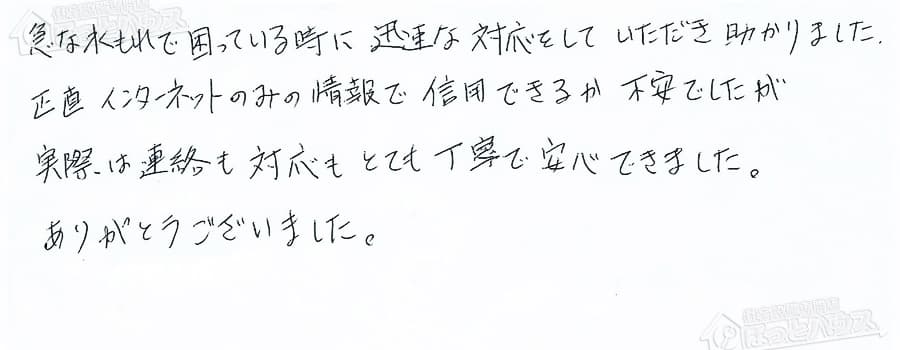 急な水もれで困っている時に 迅速な対応をして いただき助かりました.
正直 インターネットのみの情報で 信用できるか 不安でしたが
実際は連絡も 対応も とても丁寧で 安心できました。
ありがとうございました。
ほっとハウス